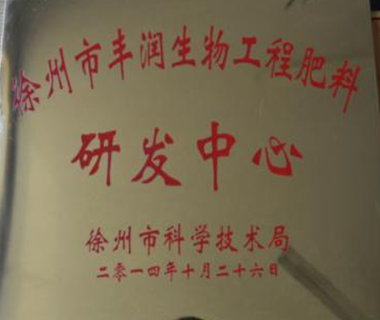 徐州市丰润生物工程肥料
研发中心
徐州市科学技术局
二零一四年十月二十六日